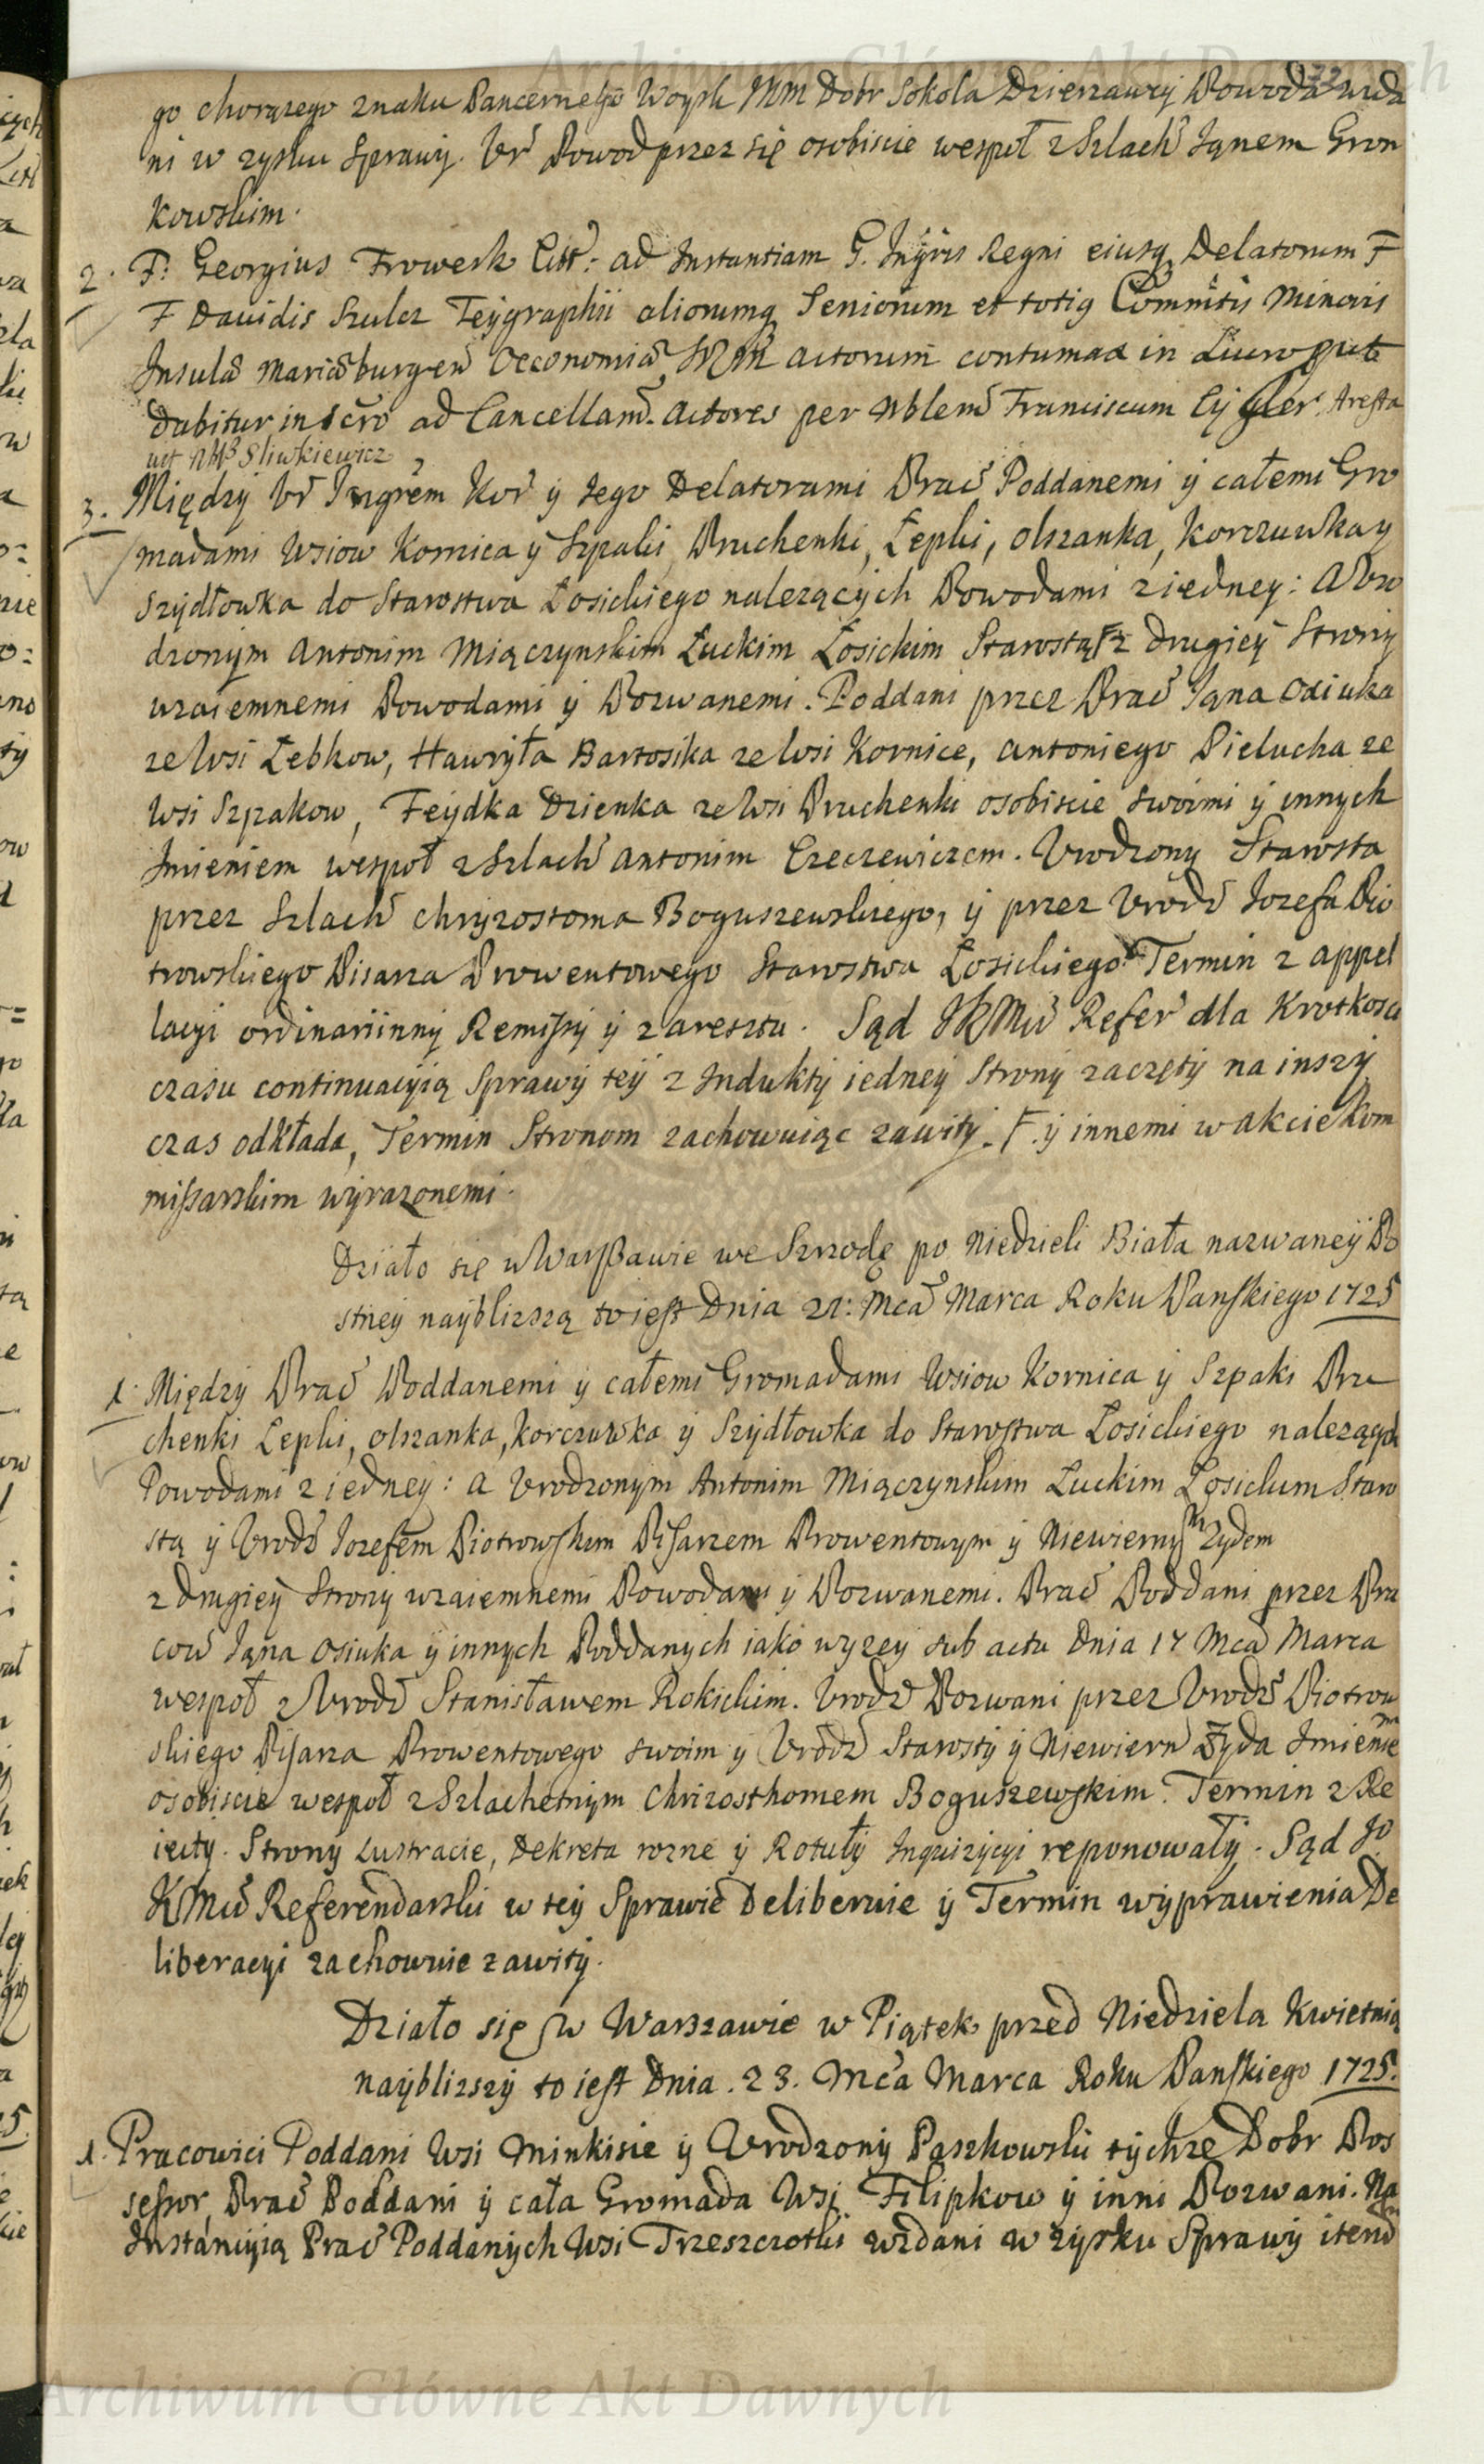 Archiwum Główne Akt Dawnych
go chorązego znaku Pancernego Woysk JKM Dobr Sokola Dzierzawcy Powoda wzda
ni w zysku Sprawy. Vr Powod przez się osobiscie wespoł z Szlach Janem Gron
kowskim.
2. F. Georgius Frowerk Citt: ad Instantiam G. Ingris Regni eiusq Delatorum F
F Davidis Szulcz Teygraphii aliorumq Seniorum et totig Commtis Minoris
Insulæ Mariæburgen Oeconomiæ actorum contumax in Lucro
dabitur in scro ad Cancellam. Actores per Nblem Franciscum Cygler. Aresta
uct Sliwkiewicz
3. Między Vr Ingrem Kor y Jego Delatorami Prac Poddanemi y całemi Gro
madami Wsiow Kornica y Szpaki, Pruchenki, Łepki, Olszanka, Korczuwka y
Szydłowka do Starostwa Łosickiego nalezących Powodami z iedney: A Vro
dzonym Antonim Miączynskim Łuckim Łosickim Starostą F z drugiey Strony
wzaiemnemi Powodami y Pozwanemi. Poddani przez Prac Jana Osiuka
ze Wsi Łebkow, Hawryła Bartosika ze Wsi Kornice, Antoniego Pielucha ze
Wsi Szpakow, Feydka Dzienka ze Wsi Pruchenki osobiscie swoimi y innych
Imieniem wespoł z Szlach Antonim Czeczewiczem. Vrodzony Starosta
przez Szlach Chryzostoma Boguszewskiego, y przez Vrodz Jozefa Pio
trowskiego Pisarza Prowentowego Starostwa Łosickiego. Termin z appel
lacyi ordinariinny Remissy y z aresztu. Sąd JKMci Refer dla Krotkosci
czasu continuacyią Sprawy tey z Indukty iedney Strony zaczęty na inszy
czas odkłada, Termin Stronom zachowuiąc zawity. F. y innemi w akcie kom
missarskim wyrazonemi.
Działo się w Warszawie we Szrzodę po Niedzieli Biała nazwaney Po
stney nayblizszą to iest Dnia 21: Mca Marca Roku Panskiego 1725
1. Między Prac Poddanemi y całemi Gromadami Wsiow Kornica y Szpaki Pru
chenki Lepki, Olszanka, Korczuwka y Szydłowka do Starostwa Łosickiego nalezących
Powodami z iedney: a Vrodzonym Antonim Miączynskim Łuckim Łosickim Staro
stą y Vrodz Jozefem Piotrowskim Pisarzem Prowentowym y Niewiernym Zydem
z drugiey Strony wzaiemnemi Powodami y Pozwanemi. Prac Poddani przez Pra
cow Jana Osiuka y innych Poddanych iako wyzey sub actu Dnia 17 Mca Marca
wespoł z Vrodz Stanisławem Rokickim. Vrodz Pozwani przez Vrodz Piotrow
skiego Pisarza Prowentowego swoim y Vrodz Starosty y Niewiern Zyda Imieniem
osobiscie wespoł z Szlachetnym Chrizosthomem Boguszewskim. Termin z Re
iekty. Strony Lustracie, Dekreta rozne y Rotuły Inquizycyi reponowały. Sąd Jo
KMci Referendarski w tey Sprawie Deliberuie y Termin wyprawienia De
liberacyi zachowuie zawity.
Działo się w Warszawie w Piątek przed Niedziela Kwietnią
nayblizszy to iest Dnia. 23. Mca Marca Roku Panskiego 1725.
1. Pracowici Poddani Wsi Minkisie y Vrodzony Paszkowski tychze Dobr Pos
sessor, Prac Poddani y cała Gromada Wsi Filipkow y inni Pozwani. Na
Instancyią Prac Poddanych Wsi Trzeszczotki wzdani w zysku Sprawy itend
Archiwum Główne Akt Dawnych